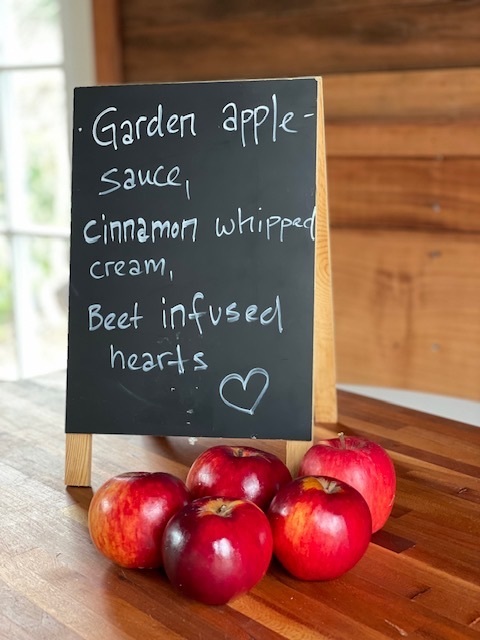 · Garden apple-
sauce,
cinnamon whipped
cream,
Beet infused
hearts